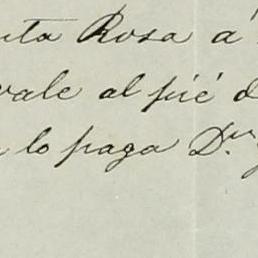 nta Rosa á
vale al pié d
lo paga Dn